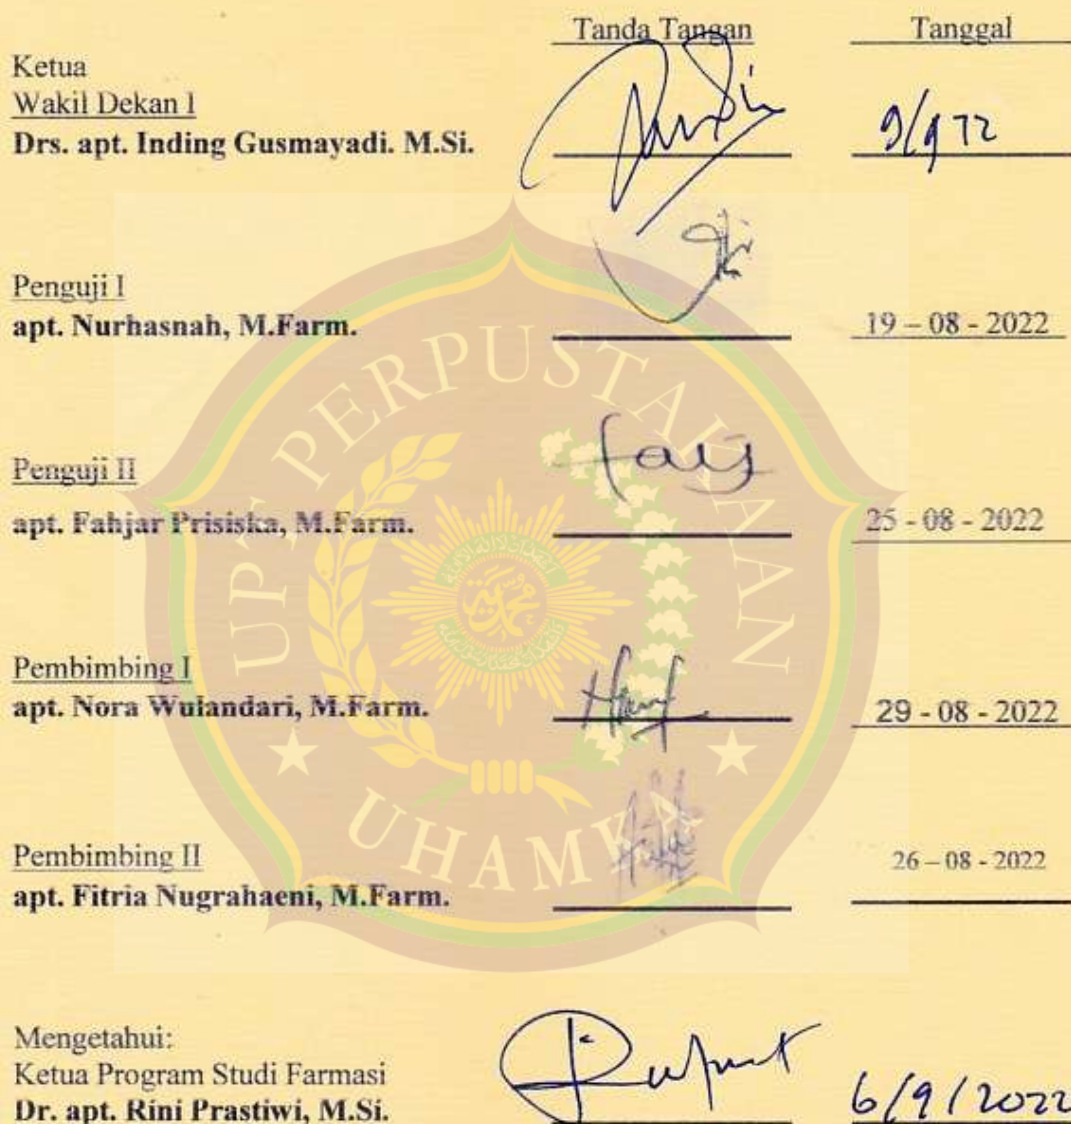 Tanda Tangan Tanggal
Ketua
Wakil Dekan I
Drs. apt. Inding Gusmayadi. M.Si.
Penguji I
apt. Nurhasnah, M.Farm.
19 – 08 - 2022
Penguji II
apt. Fahjar Prisiska, M.Farm.
25 - 08 - 2022
Pembimbing I
apt. Nora Wulandari, M.Farm.
29 - 08 - 2022
Pembimbing II
26 – 08 - 2022
apt. Fitria Nugrahaeni, M.Farm.
Mengetahui:
Ketua Program Studi Farmasi
Dr. apt. Rini Prastiwi, M.Si.
6/9/2022
UPT PERPUSTAKAAN
UHAMKA